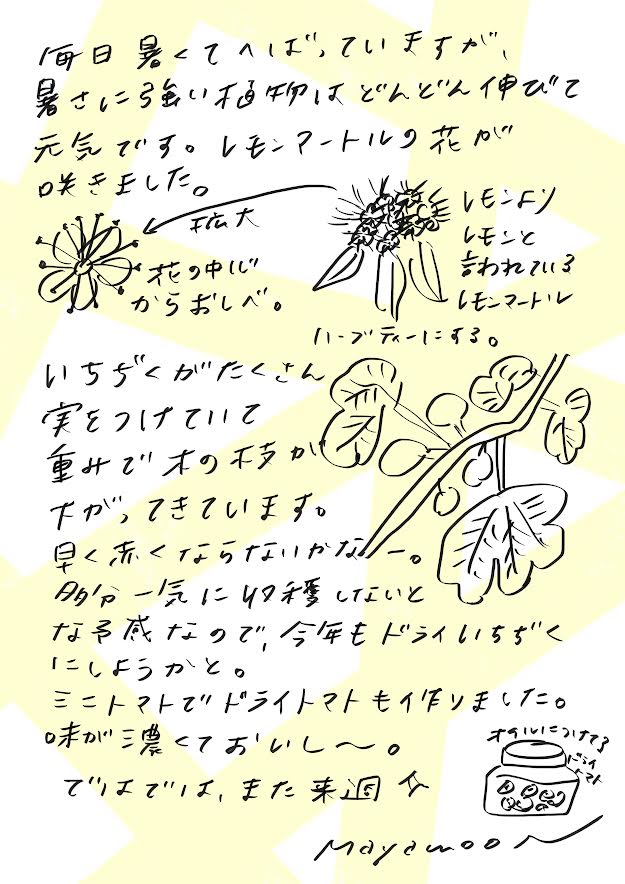 毎日暑くてへばっていますが、
暑さに強い植物はどんどん伸びて
元気です。レモンマートルの花が
咲きました。
拡大
花の中心
からおしべ。
レモンより
レモンと
言われている
レモンマートル
ハーブティーにする。
いちぢくがたくさん
実をつけていて
重みで木の枝が
下がってきています。
早く赤くならないかなー。
多分一気に収穫しないと
な予感なので、今年もドライいちぢく
にしようかと。
ミニトマトでドライトマトも作りました。
味が濃くておいし〜。
オイルにつけてる
ドライ
トマト
ではでは、また来週☆
Mayamoon